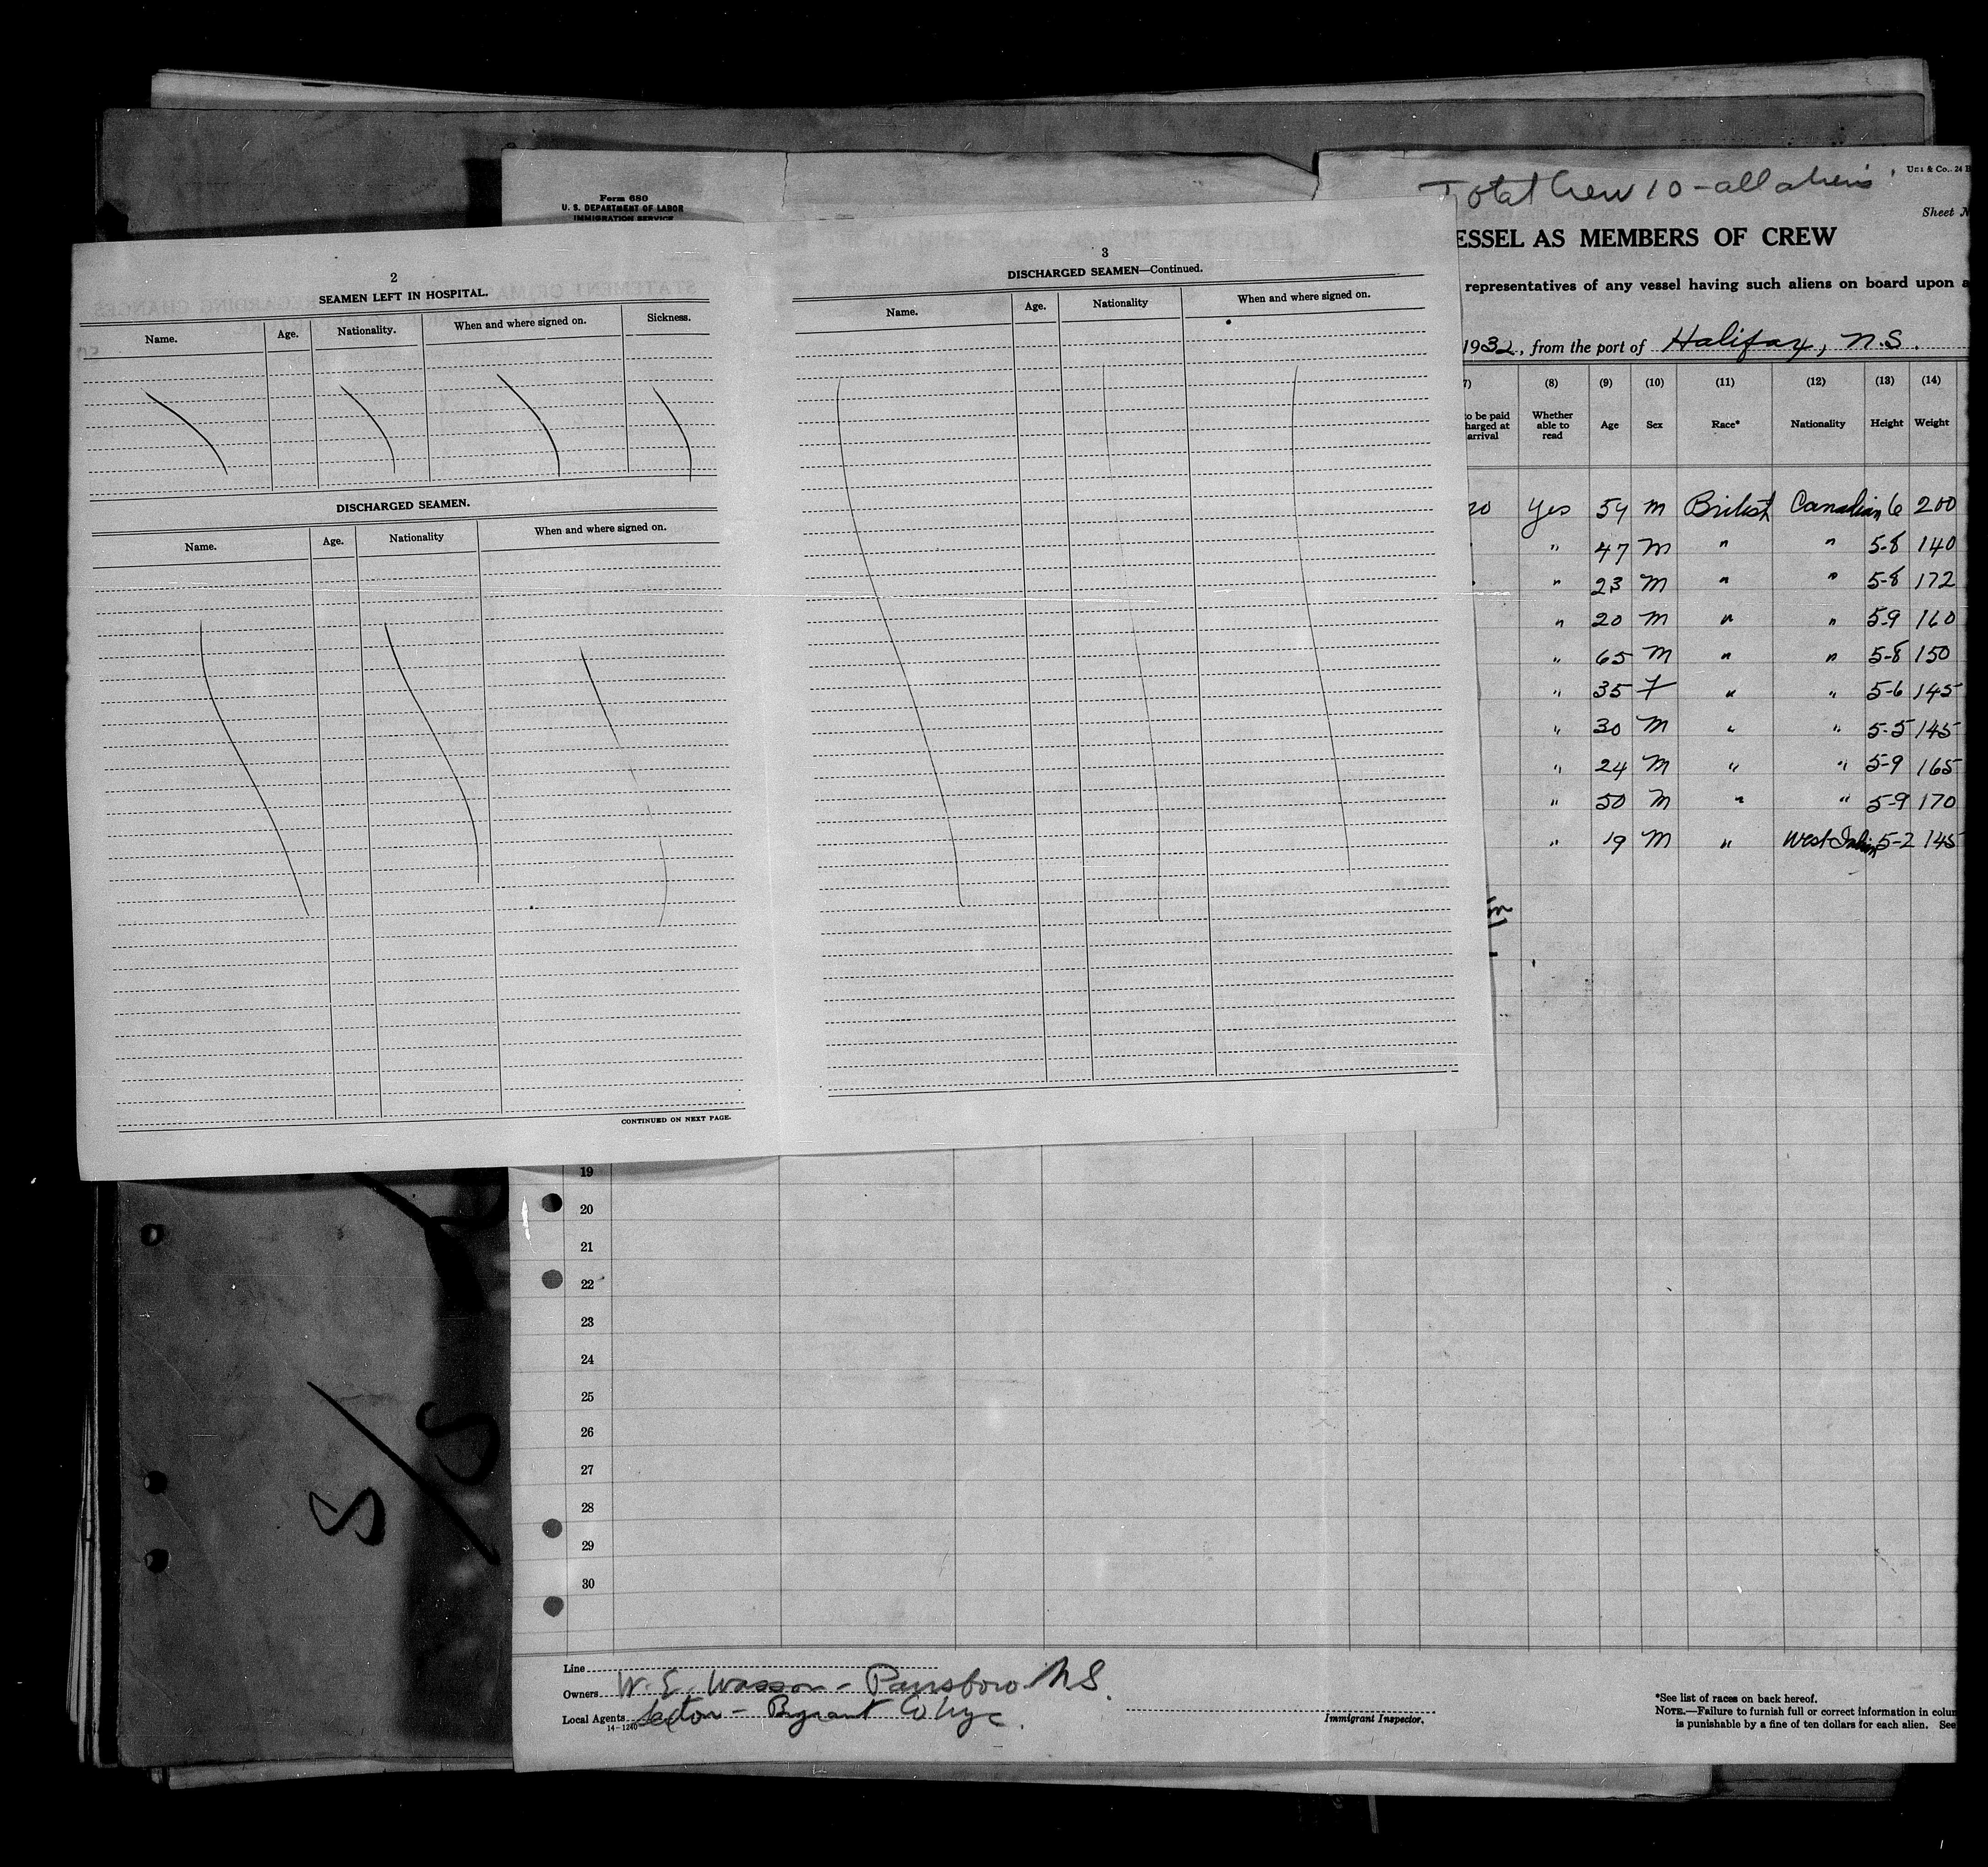 Form 680
U. S. DEPARTMENT OF LABOR
IMMIGRATION SERVICE
2
SEAMEN LEFT IN HOSPITAL.
Name. Age. Nationality. When and where signed on. Sickness.
DISCHARGED SEAMEN.
Name. Age. Nationality When and where signed on.
CONTINUED ON NEXT PAGE.
3
DISCHARGED SEAMEN—Continued.
Name. Age. Nationality When and where signed on.
Total Crew 10 - all aliens
& Co., 24
Sheet
ESSEL AS MEMBERS OF CREW
representatives of any vessel having such aliens on board upon
1932, from the port of Halifax, N.S.
(8) (9) (10) (11) (12) (13) (14)
to be paid
arrival
Whether able to read Age Sex Race* Nationality Height Weight
no Yes 54 M British Canadian 6 200
" 47 M " " 5-8 140
" 23 M " " 5-8 172
" 20 M " " 5-9 160
" 65 M " " 5-8 150
" 35 F " " 5-6 145
" 30 M " " 5-5 145
" 24 M " " 5-9 165
" 50 M " " 5-9 170
" 19 M " West Indian 5-2 145
19
20
21
22
23
24
25
26
27
28
29
30
S/S
Line
Owners W. E. Wasson - Parrsboro N.S.
Local Agents
14-1240
Immigrant Inspector.
*See list of races on back hereof.
NOTE.—Failure to furnish full or correct information in
is punishable by a fine of ten dollars for each alien. See